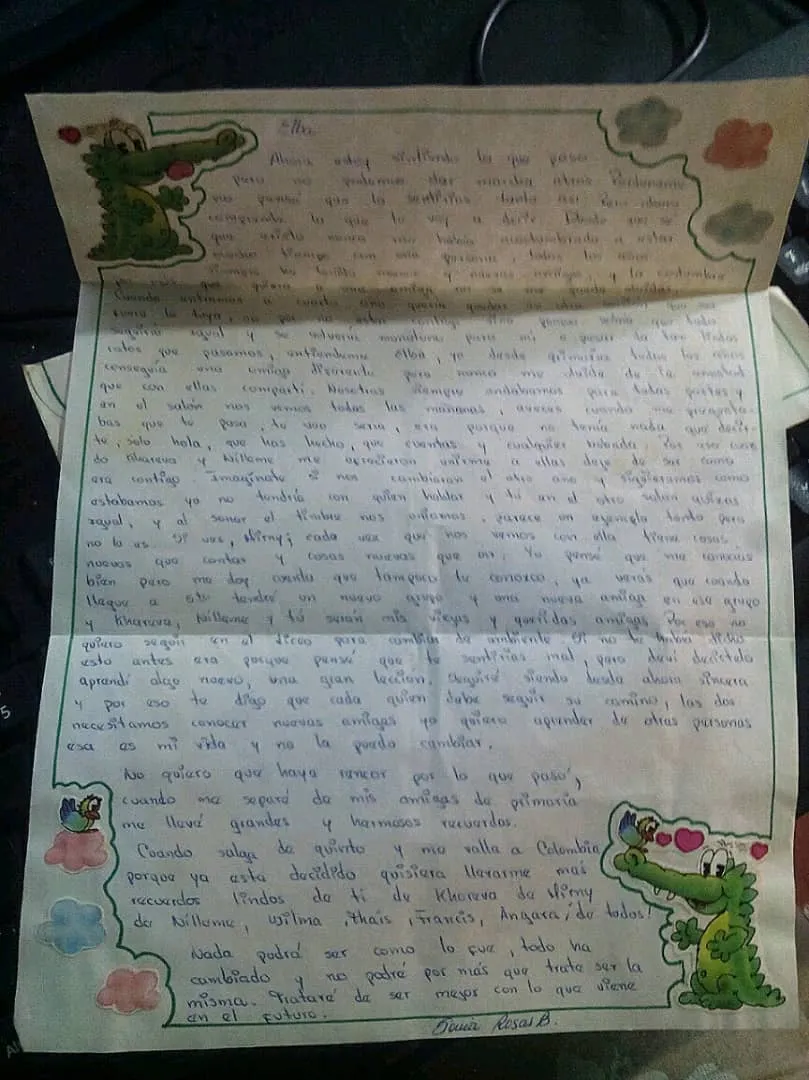 Elba
Ahora estoy sintiendo lo que paso
pero no podemos dar marcha atras Perdoname
no pensé que lo sentirias tanto asi Pero
comprende lo que te voy a decir Desde que se
que existo nunca me había acostumbrado a estar
mucho tiempo con una persona, todos los años
siempre he tenido nuevas y nuevos amigos, y la costumbre
que quiera a una amiga no se me puede olvidar.
Cuando entramos a cuarto año quería quedar en otra sección que no
fuera la tuya, no por no estar contigo sino porque sabía que todo
seguiría igual y se volvería monotono para mi a pesar de los lindos
ratos que pasamos, entiendeme Elba, yo desde primaria todos los años
conseguia una amiga diferente pero nunca me olvide de la amistad
que con ellas compartí. Nosotras siempre andabamos para todas partes y
en el salón nos vemos todas las mañanas, aveces cuando me pregunta-
bas que te pasa, te veo seria, era porque no tenía nada que decir-
te, solo hola, que has hecho, que cuentas y cualquier bobada. Por eso cuan
do Khareva y Nilleme me ofrecieron unirme a ellas deje de ser como
era contigo. Imagínate si nos cambiaran el otro año y siguieramos como
estabamos yo no tendría con quien hablar y tú en el otro salon quizas
igual, y al sonar el timbre nos uniamos, parece un ejemplo tonto pero
no lo es. Si ves, Mirny; cada vez que nos vemos con ella tiene cosas
nuevas que contar y cosas nuevas que oir. Yo pensé que me conocias
bien pero me doy cuenta que tampoco te conozco, ya verás que cuando
llegue a 5to tendré un nuevo grupo y una nueva amiga en ese grupo
y Khareva, Nilleme y tú serán mis viejas y queridas amigas Por eso no
quiero seguir en el liceo para cambiar de ambiente Si no te había dicho
esto antes era porque pensé que te sentirias mal, pero deví decirtelo
aprendí algo nuevo, una gran leccion. Seguiré siendo desde ahora sincera
y por eso te digo que cada quien debe seguir su camino, las dos
necesitamos conocer nuevas amigas yo quiero aprender de otras personas
esa es mi vida y no la puedo cambiar.
No quiero que haya rencor por lo que pasó,
cuando me separé de mis amigas de primaria
me llevé grandes y hermosos recuerdos.
Cuando salga de quinto y me valla a Colombia
porque ya está decidido quisiera llevarme más
recuerdos lindos de ti de Khareva de Mirny
de Nilleme, Wilma, Thaís, Francis, Angara, de todos!
Nada podrá ser como lo fue, todo ha
cambiado y no podré por más que trate ser la
misma. Trataré de ser mejor con lo que viene
en el futuro.
Sonia Rosas B.